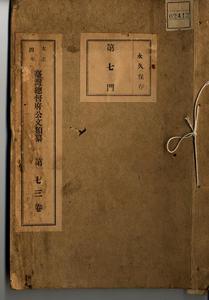 02412
永久保存
第七門
大正四年
臺灣總督府公文類纂 第七三卷